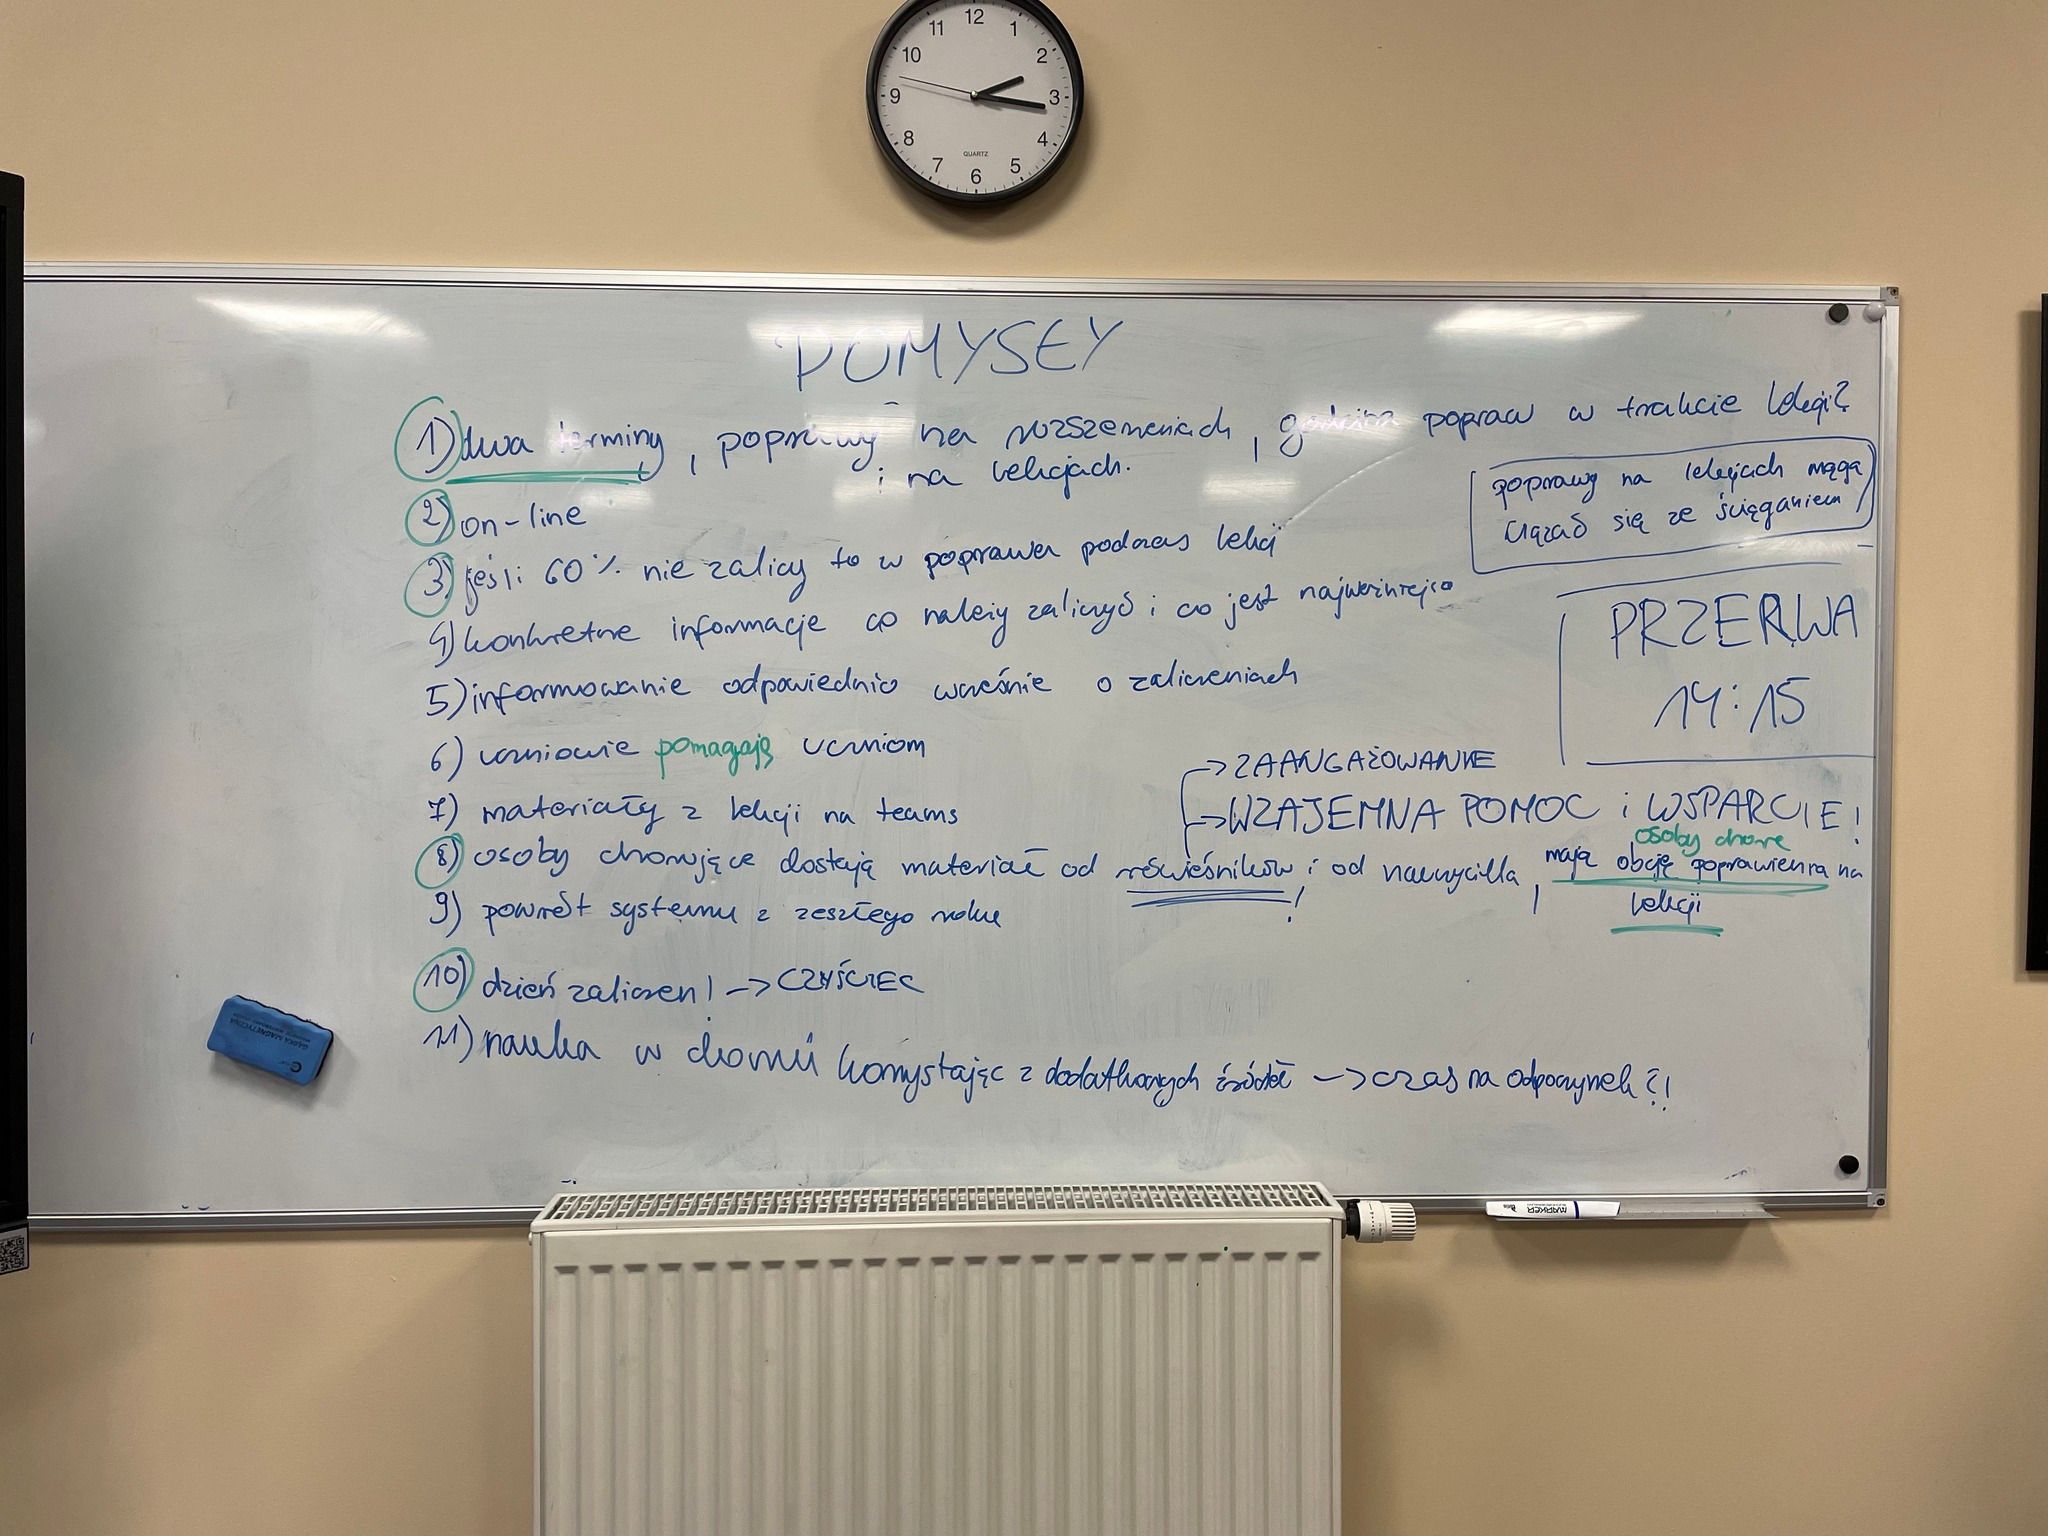 12
11 1
10 2
9 3
8 4
7 5
6
QUARTZ
POMYSŁY
1) dwa terminy, poprawy na rozszerzeniach, godzina popraw w trakcie lekcji?
i na lekcjach.
poprawy na lekcjach mogą
wiązać się ze ściąganiem
2) on-line
3) jeśli 60% nie zaliczy to w poprawa podczas lekcji
4) konkretne informacje co należy zaliczyć i co jest najważniejsze
PRZERWA
14:15
5) informowanie odpowiednio wcześnie o zaliczeniach
6) uczniowie pomagają uczniom
→ ZAANGAŻOWANIE
7) materiały z lekcji na teams
→ WZAJEMNA POMOC i WSPARCIE!
osoby chore
8) osoby chorujące dostają materiał od rówieśników! i od nauczyciela, mają obcję poprawienia na
lekcji
9) powrót systemu z zeszłego roku
10) dzień zaliczen! → CZYŚCIEC
11) nauka w domu korzystając z dodatkowych źródeł → czas na odpoczynek?!
GĄBKA MAGNETYCZNA
MARKER